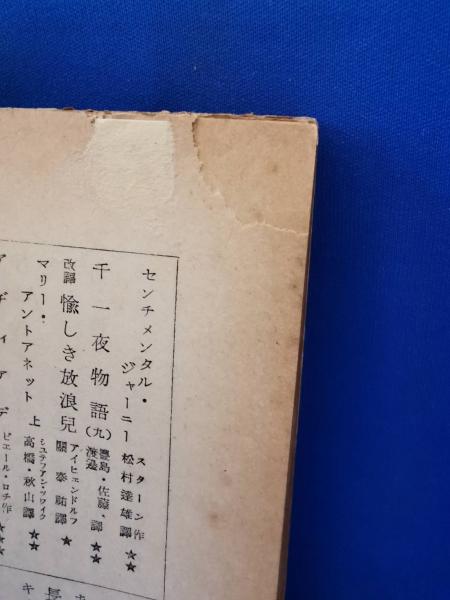 センチメンタル・
ジャーニー
スターン作
松村達雄譯
★★
千一夜物語(九)
豊島・佐藤・
渡邊
譯
★★
改譯 愉しき放浪兒
アイヒェンドルフ
關泰祐譯
★
マリー・
アントアネット 上
シュテファン・ツワイク
高橋・秋山譯
★★
アヂィアデ
ピエール・ロチ作
★★★
長
キ